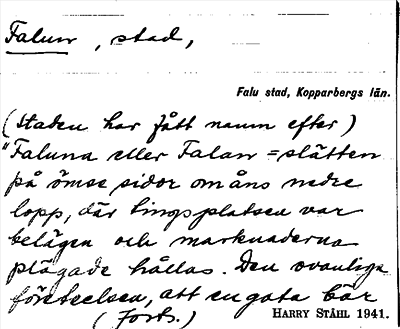 Falun, stad,
Falu stad, Kopparbergs län.
(Staden har fått namn efter)
"Faluna eller Falan = slätten
på ömse sidor om åns nedre
lopp, där tingsplatsen var
belägen och marknaderna
plägade hållas. Den ovanliga
företeelsen, att en gata bär
(Forts.)
HARRY STÅHL 1941.